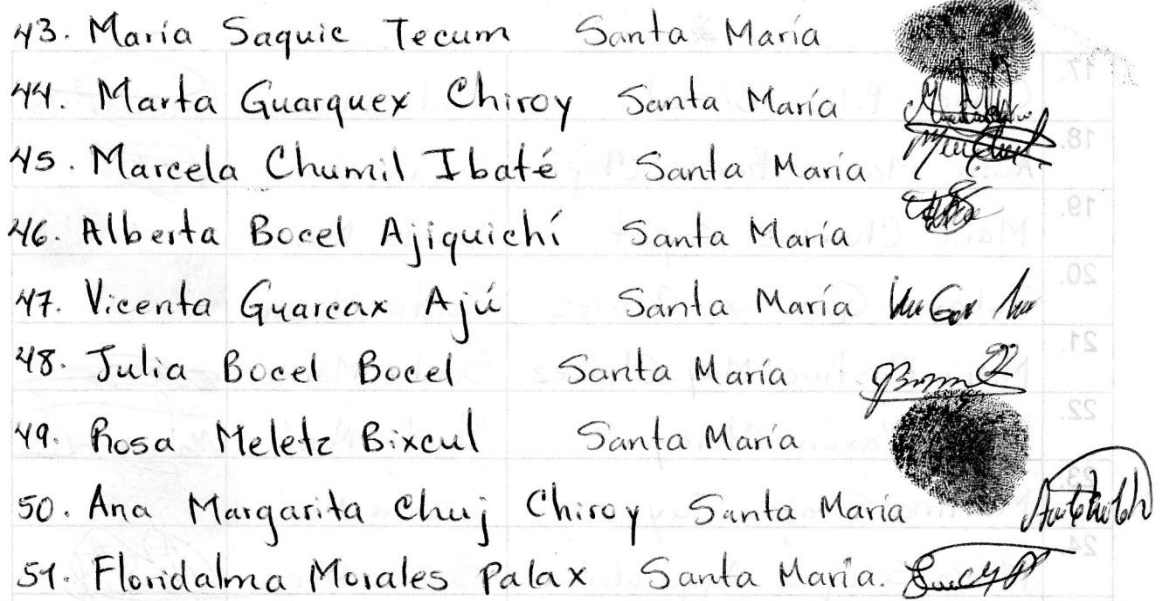 43. María Saquic Tecum Santa María
44. Marta Guarquex Chiroy Santa María
45. Marcela Chumil Ibaté Santa María
46. Alberta Bocel Ajiquichí Santa María
47. Vicenta Guarcax Ajú Santa María
48. Julia Bocel Bocel Santa María
49. Rosa Meletz Bixcul Santa María
50. Ana Margarita Chuj Chiroy Santa María
51. Floridalma Morales Palax Santa María.